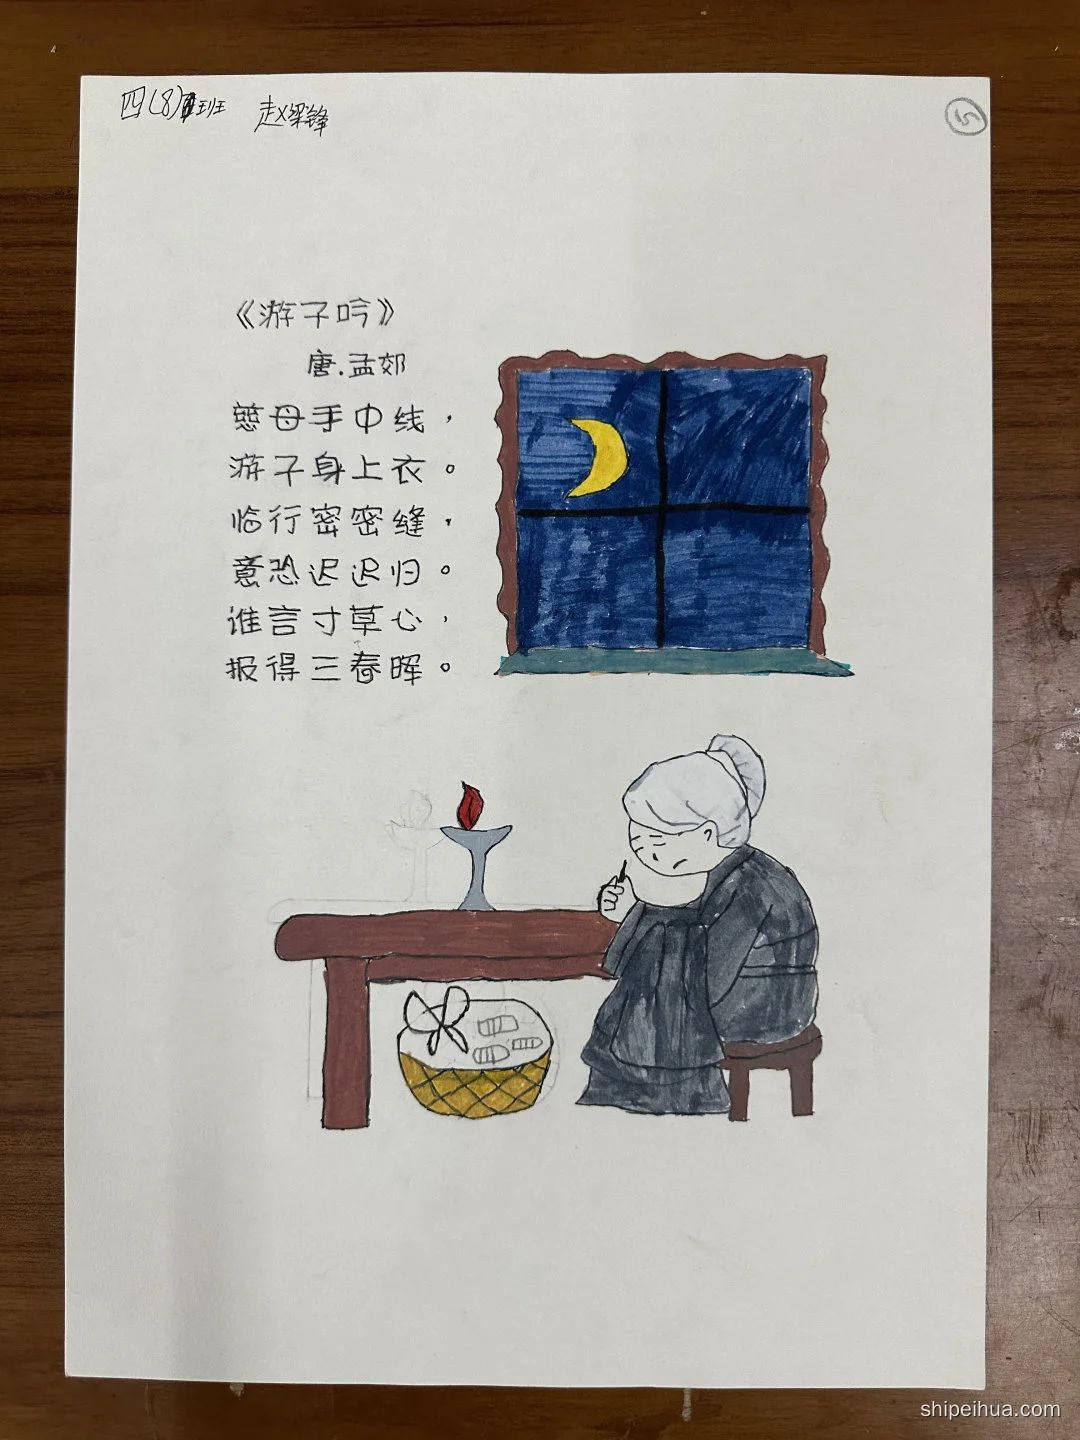 四(8)班 赵梁锋
5
《游子吟》
唐.孟郊
慈母手中线，
游子身上衣。
临行密密缝，
意恐迟迟归。
谁言寸草心，
报得三春晖。
shipeihua.com